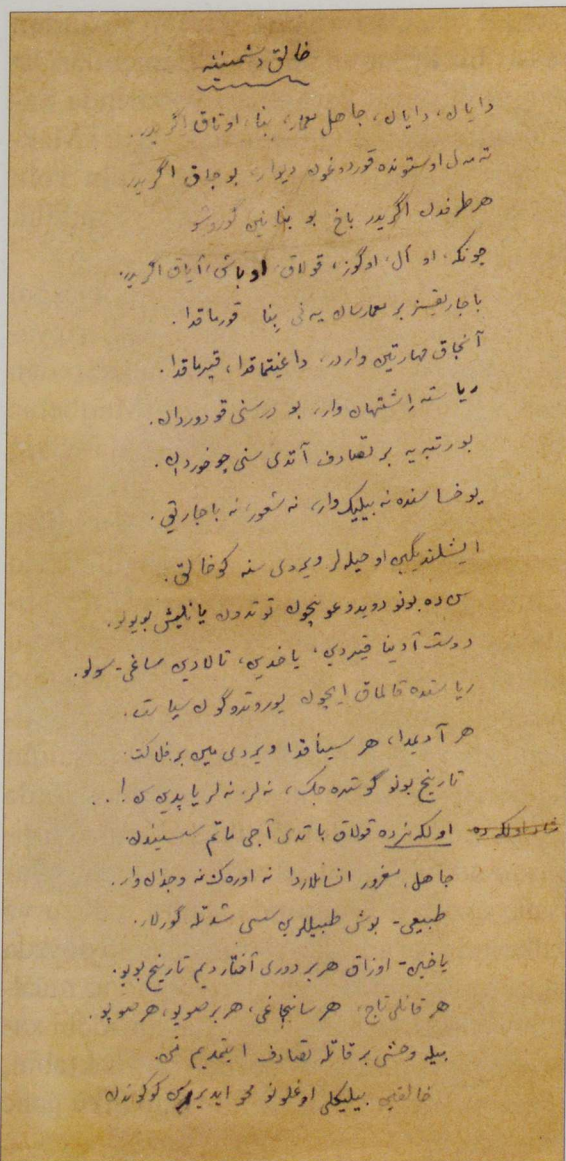 خالق دشمنینه
دایان، دایان، جاهل معمار، بنا، اوتاق اگریدر.
تمه‌ل اوستونده قوردوغون دیوار، بوجاق اگریدر
هر طرفدن اگریدر باخ بو بنانین گوروشو
چونکه، او ال، اوگوز، قولاق، او باش، آیاق اگریدر.
باجاریقسیز بر معمارسان یه‌نی بنا قورماقدا.
آنجاق مهارتین واردر، داغیتماقدا، قیرماقدا.
ریاسته اشتهان وار، بو درسنی قودوردان.
بو رتبه‌یه بر تصادف آتدی سنی چوخوردان.
یوخسا سنده نه بیلیک وار، نه شعور، نه باجاریق.
ایشلتدیگین او حیله‌لر ویردی سنه کوخالق.
سن ده بونو دویدوغونچون توتدون یانلیش بو یولو.
دوست آدینا قیردین، یاخدین، تالادین ساغی-سولو.
ریاستده قالماق ایچون یوروتدوگون سیاست.
هر آدیمدا، هر سیناقدا ویردی مین بر فلاکت.
تاریخ بونو گوستره‌جک، نه‌لر، نه‌لر یاپدین سن!..
اولکه‌نزده قولاق باتدی آجی ماتم سسیندن.
جاهل، مغرور انسانلاردا نه اوره‌ک نه وجدان وار.
طبیعی- بوش طبیللرین سسی شدتله گورلار.
یاخین- اوزاق هر بر دوری آختاردیم تاریخ بویو.
هر قانلی تاج، هر سانجاغی، هر بر صویو، هر صوپو.
بیله وحشی بر قاتله تصادف ایتمدیم من.
خالقین بیلیکلی اوغلونو محو ایدیرسن کوکوندن